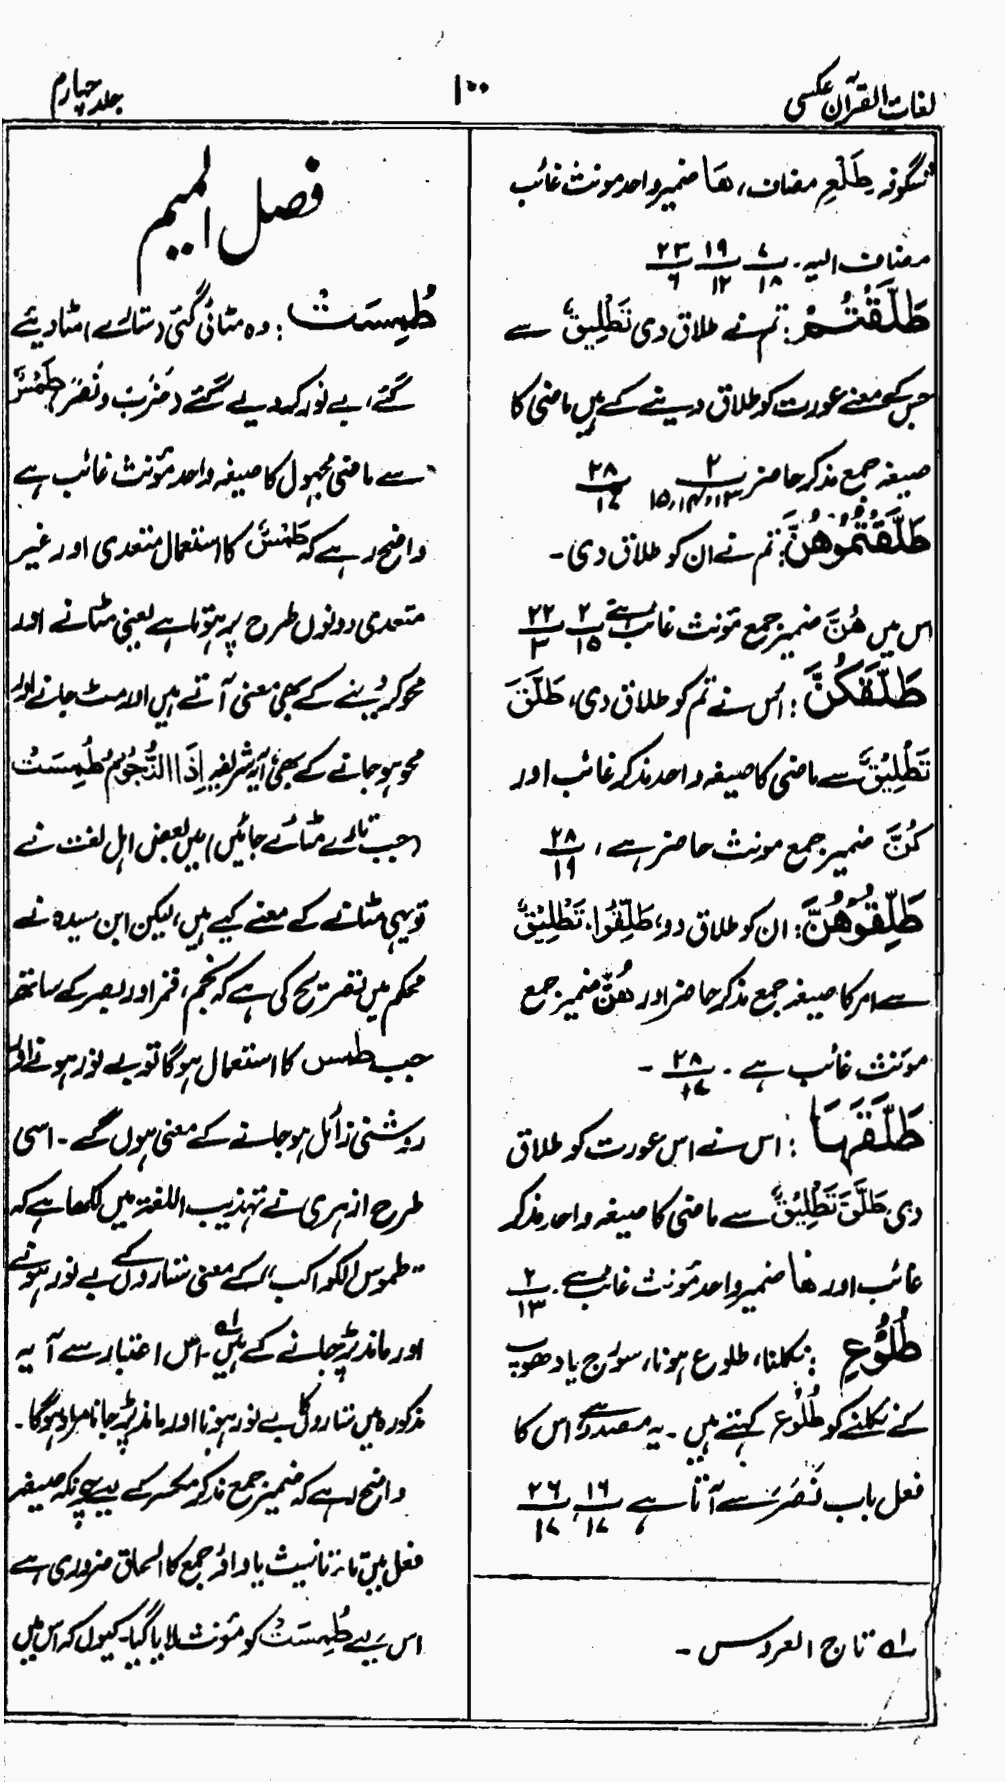 لغات القرآن عکسی
۱۰۰
جلد چہارم
شگوفہ طَلْعِ مضاف، ھَا ضمیر واحد مونث غائب
مضاف الیہ۔ ۷/۱۸ ۱۹/۱۲ ۲۳/۶
طَلَّقْتُمْ: تم نے طلاق دی تَطْلِیْقٌ سے
جس کے معنے عورت کو طلاق دینے کے ہیں ماضی کا
صیغہ جمع مذکر حاضر ۲/۱۳،۱۴،۱۵ ۲۸/۱۷
طَلَّقْتُمُوْھُنَّ: تم نے ان کو طلاق دی۔
اس میں ھُنَّ ضمیر جمع مؤنث غائب ہے ۲/۱۵ ۲۲/۳
طَلَّقَکُنَّ: اُس نے تم کو طلاق دی، طَلَّقَ
تَطْلِیْقٌ سے ماضی کا صیغہ واحد مذکر غائب اور
کُنَّ ضمیر جمع مونث حاضر ہے، ۲۸/۱۹
طَلِّقُوْھُنَّ: ان کو طلاق دو، طَلِّقُوا، تَطْلِیْقٌ
سے امر کا صیغہ جمع مذکر حاضر اور ھُنَّ ضمیر جمع
مؤنث غائب ہے۔ ۲۸/۱۷ ۔
طَلَّقَہَا: اس نے اس عورت کو طلاق
دی طَلَّقَ تَطْلِیْقٌ سے ماضی کا صیغہ واحد مذکر
غائب اور ھا ضمیر واحد مؤنث غائب ہے۔ ۲/۱۳
طُلُوْعِ: نکلنا، طلوع ہونا، سورج یا دھوپ
کے نکلنے کو طُلُوْع کہتے ہیں۔ یہ مصدر ہے اس کا
فعل باب نَصَرَ سے آتا ہے ۱۶/۱۷، ۲۶/۱۷
لہ تاج العروس ۔
فصل المیم
طُمِسَتْ: وہ مٹائی گئی (ستارے) مٹا دیئے
گئے، بے نور کر دیے گئے (ضَرَبَ و نَصَرَ) طَمْسٌ
سے ماضی مجہول کا صیغہ واحد مؤنث غائب ہے
واضح رہے کہ طَمْسٌ کا استعمال متعدی اور غیر
متعدی دونوں طرح پر ہوتا ہے یعنی مٹانے اور
محو کر دینے کے بھی معنی آتے ہیں اور مٹ جانے اور
محو ہو جانے کے بھی، آیۂ شریفہ اِذَا النُّجُوْمُ طُمِسَتْ
(جب تارے مٹائے جائیں) میں بعض اہل لغت نے
تو یہی مٹانے کے معنے کیے ہیں، لیکن ابن سیدہ نے
محکم میں تصریح کی ہے کہ نجم، قمر اور بصر کے ساتھ
جب طمس کا استعمال ہوگا تو بے نور ہونے اور
روشنی زائل ہو جانے کے معنی ہوں گے۔ اسی
طرح ازہری نے تہذیب اللغۃ میں لکھا ہے کہ
"طموس الکواکب" کے معنی ستاروں کے بے نور ہونے
اور ماند پڑ جانے کے ہیں۔ لہ اس اعتبار سے آیہ
مذکورہ میں ستاروں کا بے نور ہونا اور ماند پڑ جانا مراد ہوگا۔
واضح رہے کہ ضمیر جمع مذکر مکسر کے لیے چونکہ صیغہ
فعل میں تاء تانیث یا واؤ جمع کا الحاق ضروری ہے
اس لیے طُمِسَتْ کو مؤنث لایا گیا۔ کیوں کہ اس میں